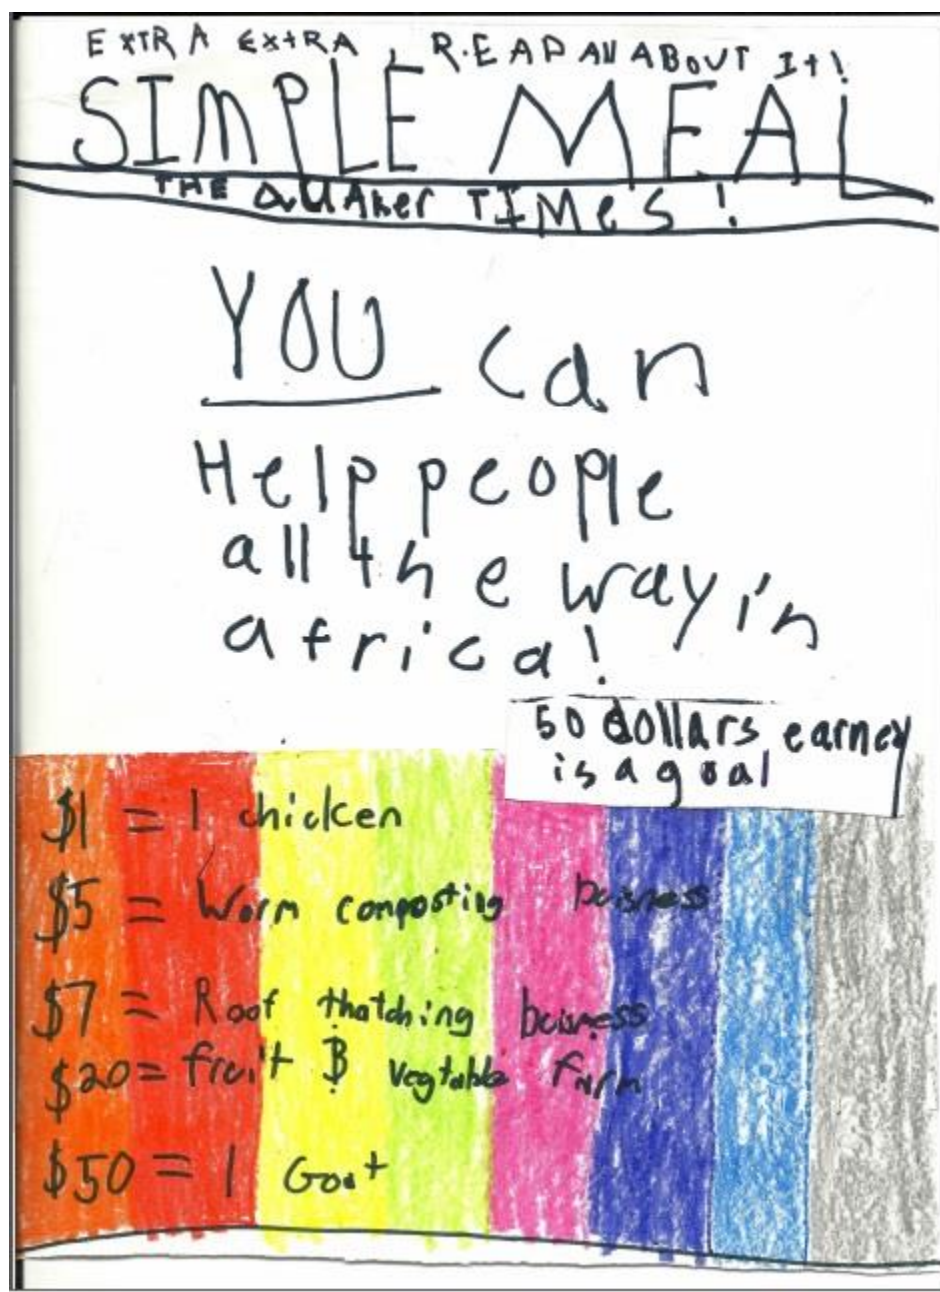 EXTRA EXTRA, READ All ABOUT It!
SIMPLE MEAL
THE QUAker TIMes!
YOU can
Help people
all the way in
africa!
50 dollars earned
is a goal
$1 = 1 chicken
$5 = Worm composting buisness
$7 = Roof thatching buisness
$20 = fruit & vegtable farm
$50 = 1 Goat